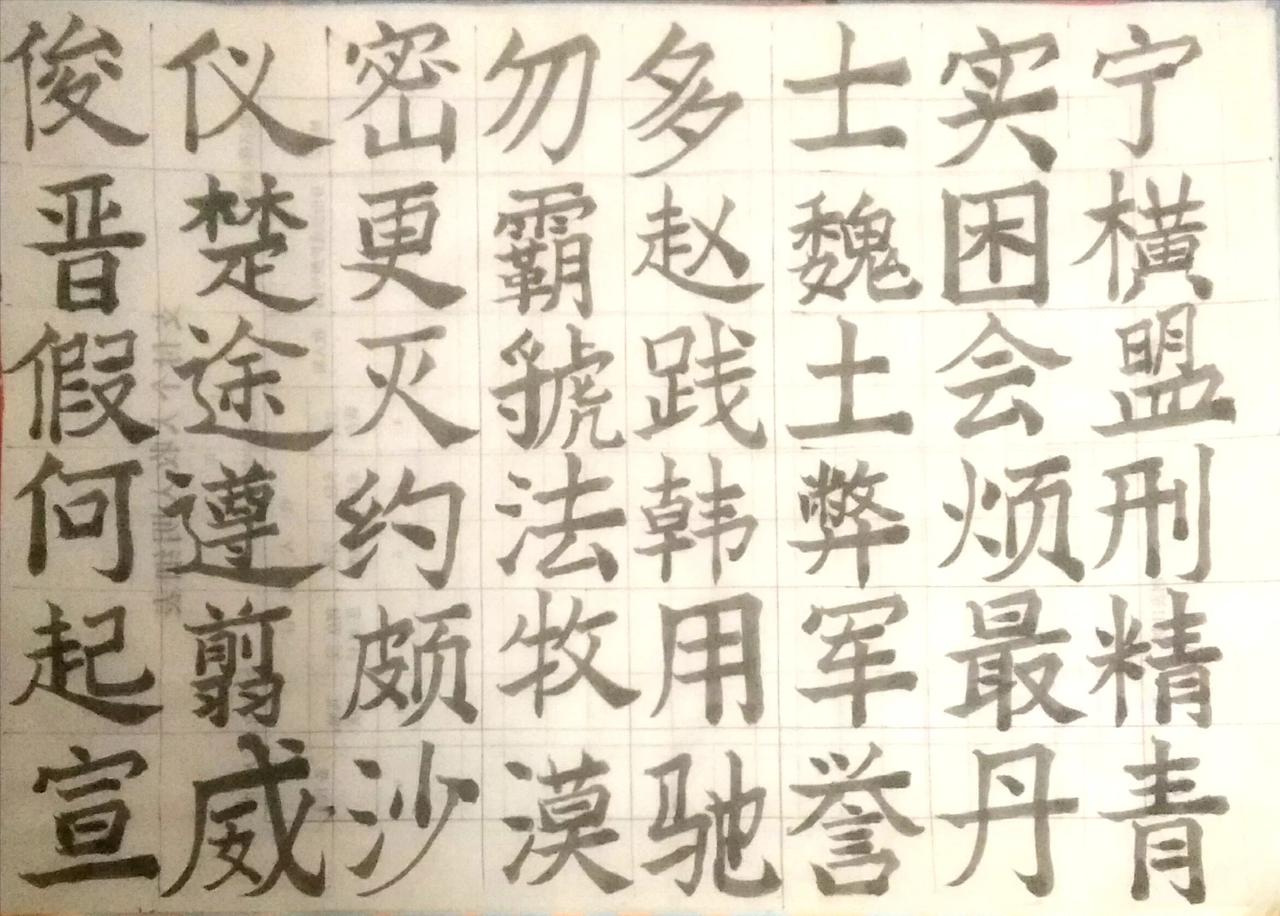 俊仪密勿多士实宁
晋楚更霸赵魏困横
假途灭虢践土会盟
何遵约法韩弊烦刑
起翦颇牧用军最精
宣威沙漠驰誉丹青